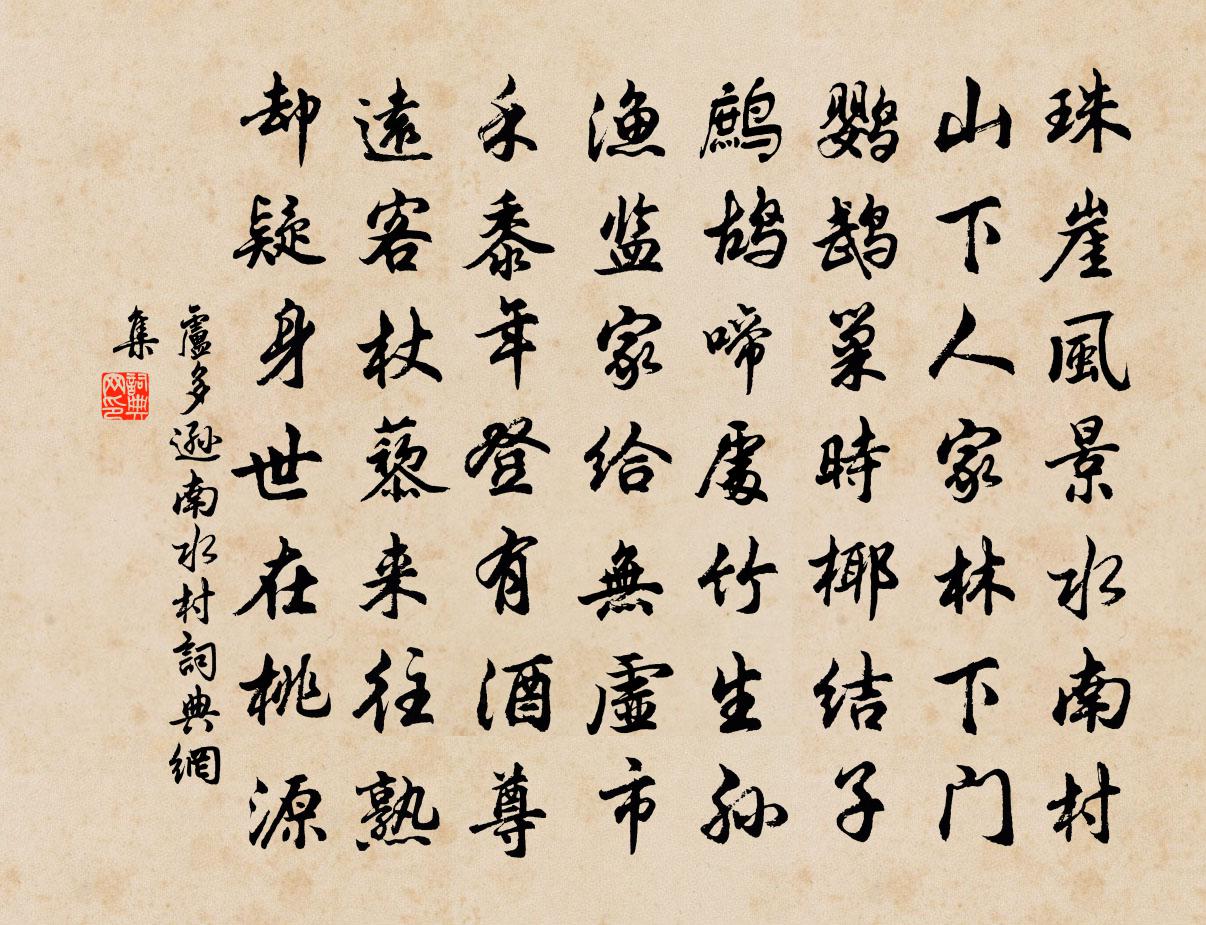 珠崖風景水南村
山下人家林下门
鹦鹉巢時椰结子
鹧鸪啼處竹生孙
渔监家给無虛市
禾黍年年登有酒尊
遠客杖藜来往熟
却疑身世在桃源
盧多遜南水村詞典網
集
詞典网印